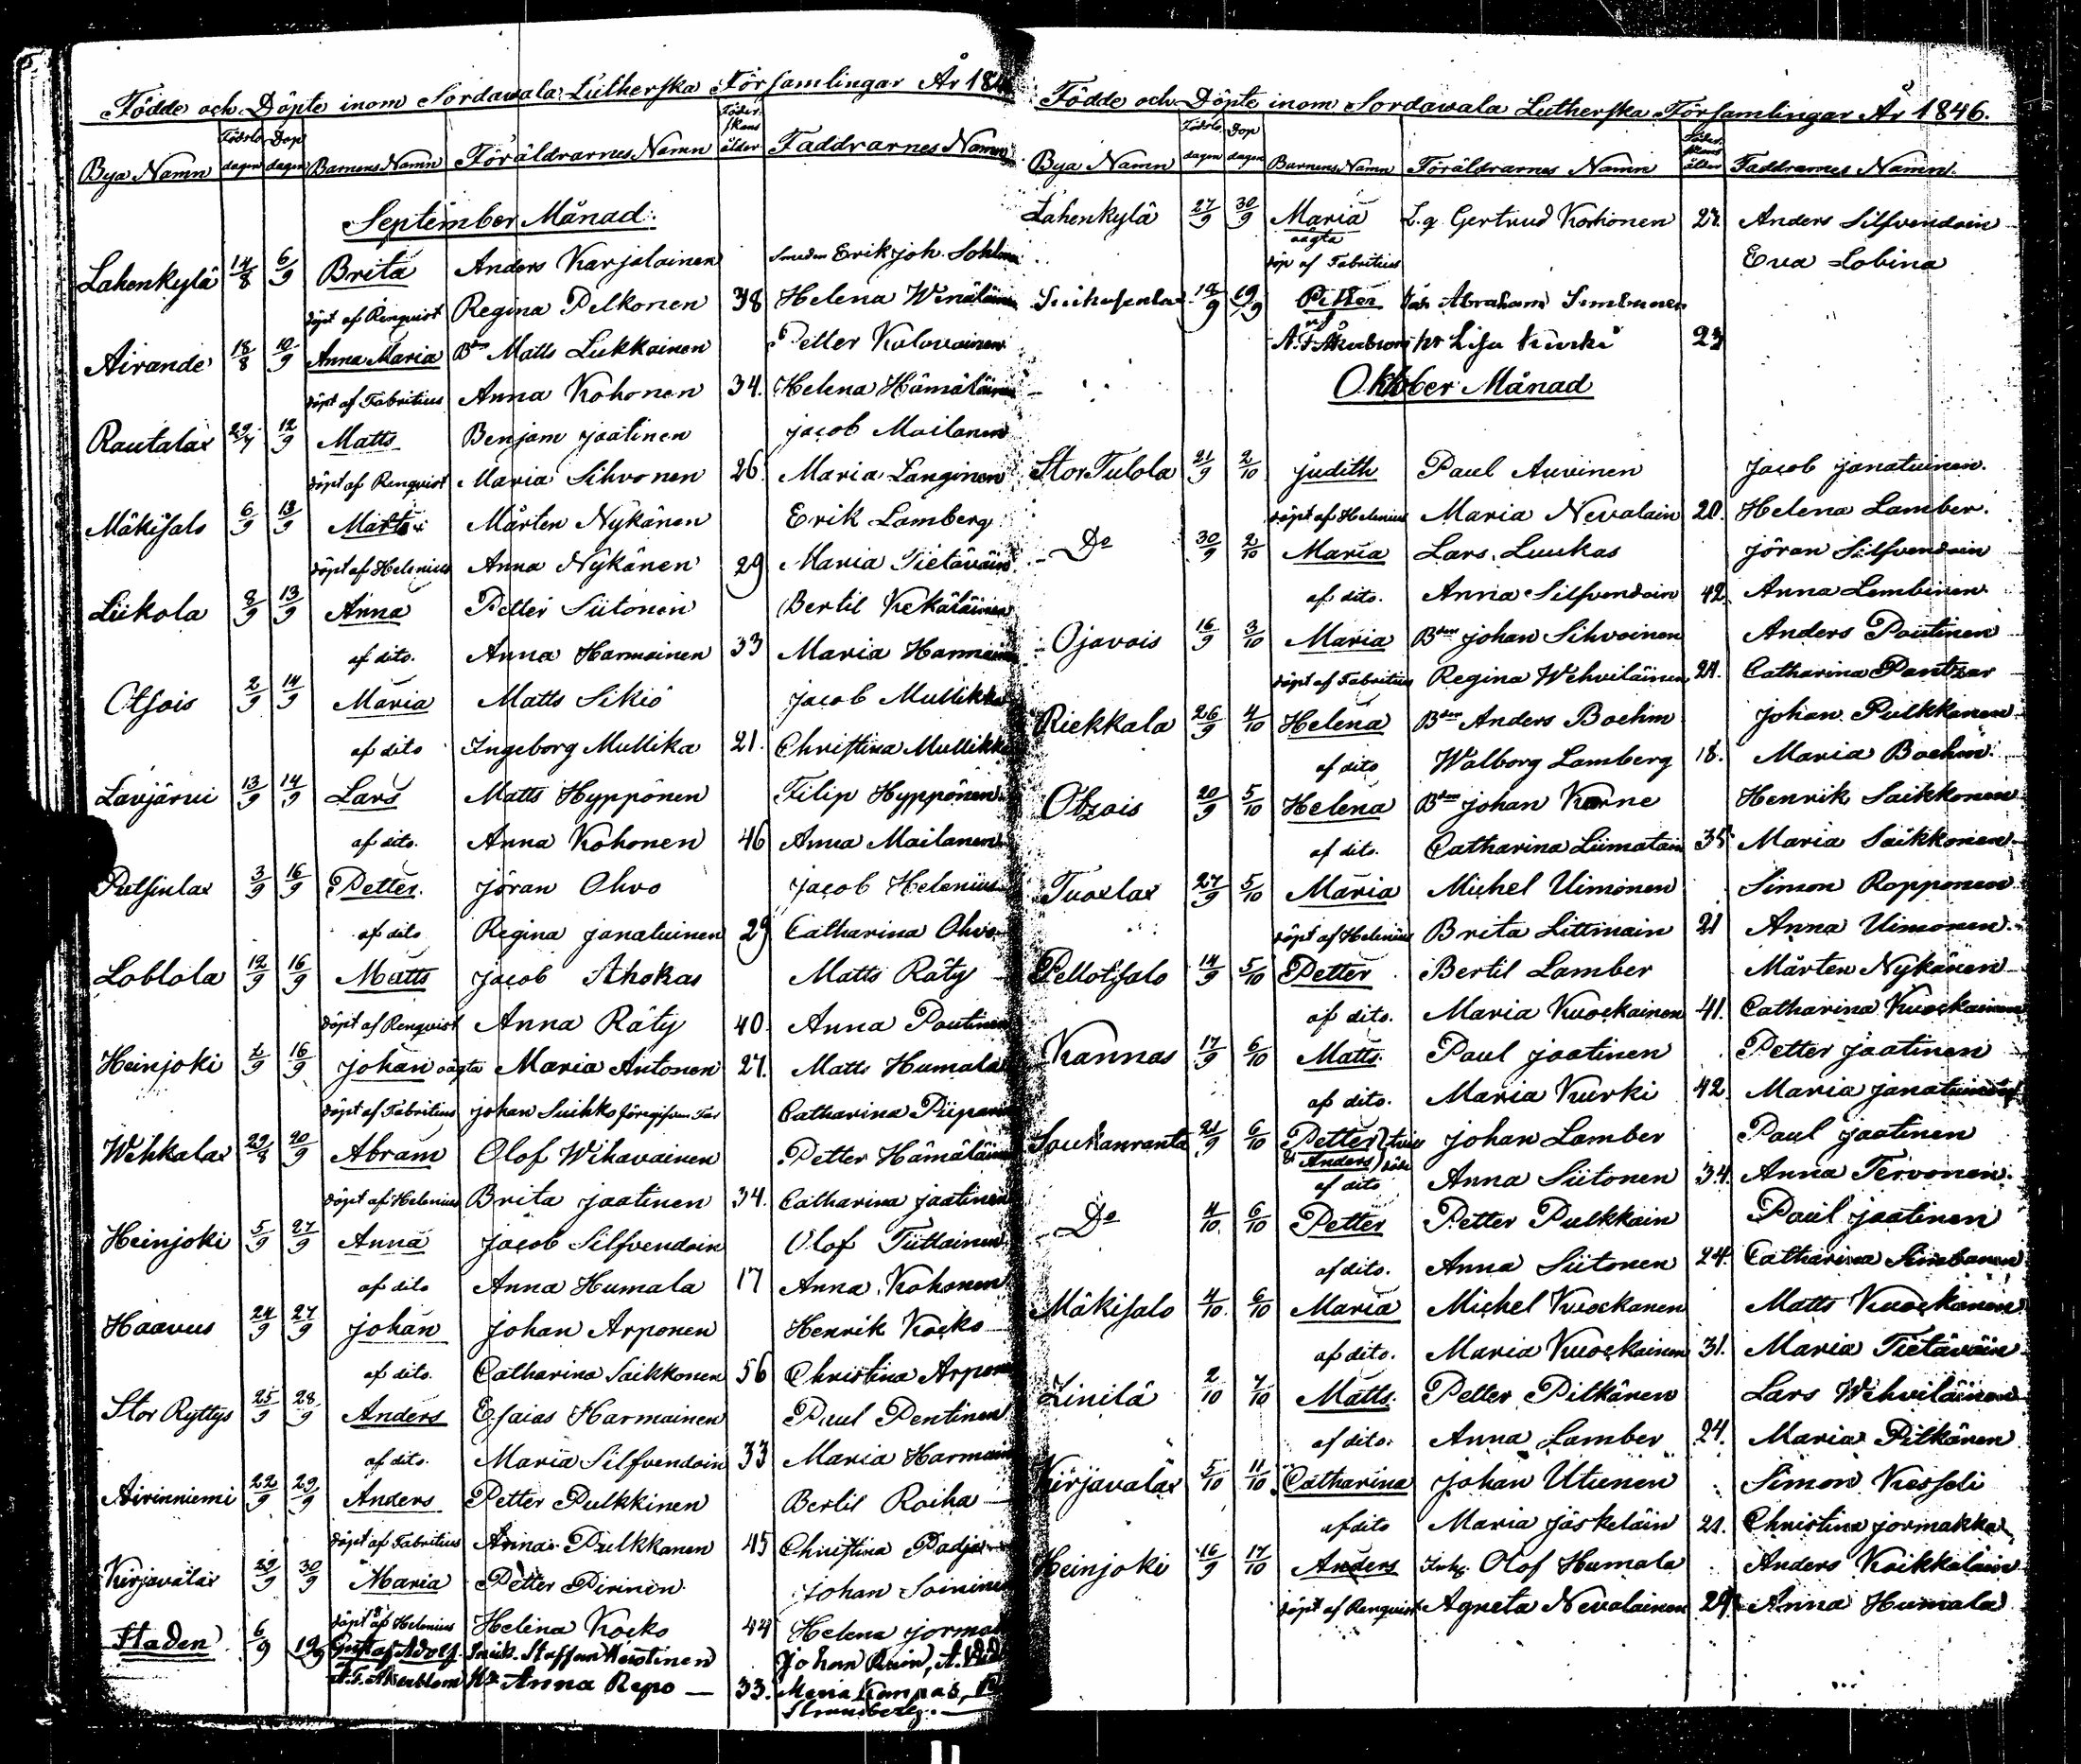 Födde och Döpte inom Sordawala Lutherska Församlingar År 184
Bya Namn Födslo dagen Dop dagen Barnens Namn Föräldrarnes Namn Föderskans ålder Faddrarnes Namn
September Månad.
Lahenkylä 14/8 6/9 Brita Anders Karjalainen Smeden Erik Joh. Sohlm
döpt af Renqvist Regina Pelkonen 38 Helena Wenäläinen
Airande 18/8 10/9 Anna Maria Bdn Matts Lukkainen Petter Kolovainen
döpt af Fabritius Anna Kohonen 34. Helena Hämäläinen
Rautalax 29/7 12/9 Matts Benjam Jaatinen Jacob Mailanen
döpt af Renqvist Maria Sihvonen 26. Maria Langinen
Mäkisalo 6/9 13/9 Mårten Nykänen Erik Lamberg
döpt af Helenius Anna Nykänen 29 Maria Tietäväin
Liikola 8/9 13/9 Anna Petter Siitonen Bertil Kekäläinen
af dito. Anna Harmainen 33 Maria Harmainen
Otsois 2/9 14/9 Maria Matts Sikiö Jacob Mullikka
af dito Ingeborg Mullika 21. Christina Mullikka
Lavjärvi 13/9 14/9 Lars Matts Hyppönen Filip Hyppönen
af dito. Anna Kohonen 46 Anna Mailanen
Putsinlax 3/9 16/9 Petter. Jöran Ohvo Jacob Helenius
af dito Regina Janatuinen 29 Catharina Ohvo
Loblola 12/9 16/9 Matts Jacob Ahokas Matts Räty
döpt af Renqvist Anna Räty 40. Anna Poutinen
Heinjoki /9 16/9 Johan oägta Maria Antonen 27. Matts Humala
döpt af Fabritius Johan Suihko föregifven Far Catharina Piiparin
Wehkalax 29/8 20/9 Abram Olof Wihavainen Petter Hämäläinen
döpt af Helenius Brita Jaatinen 34. Catharina Jaatinen
Heinjoki 5/9 27/9 Anna Jacob Silfvendoin Olof Tiittainen
af dito Anna Humala 17 Anna Kohonen
Haavus 24/9 27/9 Johan Johan Arponen Henrik Kocko
af dito. Catharina Saikkonen 56 Christina Arponen
Stor Ryttys 25/9 28/9 Anders Esaias Harmainen Paul Pentinen
af dito. Maria Silfvendoin 33 Maria Harmain
Airinniemi 22/9 29/9 Anders Petter Pulkkinen Bertil Roiha
döpt af Fabritius Anna Pulkkanen 45 Christina Padja
Kirjavalax 29/9 30/9 Maria Petter Pirinen Johan Soininen
döpt af Helenius Helena Kocko 44 Helena Jormak
Staden 6/9 19 Gustaf Adolf. Snick. Staffan Johan
A. F. Akerblom Hu Anna Repo — 33. Maria Kampas,
Strandberg.
Födde och Döpte inom Sordawala Lutherska Församlingar År 1846.
Bya Namn Födslo dagen Dop dagen Barnens Namn Föräldrarnes Namn Föderskans ålder Faddrarnes Namn.
Lahenkylä 27/9 30/9 Maria L. q. Gertrud Korhonen 27. Anders Silfvendoin
oägta
döp af Fabritius Eva Lobina
18/9 19/9 Petter Abraham
af
A. F. Åkerblom Lisa Kurki 23
Oktober Månad
Stor Tulola 21/9 2/10 Judith Paul Auvinen Jacob Janatuinen.
döpt af Helenius Maria Nevalain 20. Helena Lamber.
Do 30/9 2/10 Maria Lars Luukas Jöran Silfvendoin
af dito. Anna Silfvendoin 42. Anna Lembinen
Ojavois 16/9 3/10 Maria Bdn Johan Sihvoinen Anders Poutinen
döpt af Fabritius Regina Wehviläinen 21. Catharina Pantzar
Riekkala 26/9 4/10 Helena Bdn Anders Boehm Johan Pulkkanen
af dito Walborg Lamberg 18. Maria Boehm.
Otzois 20/9 5/10 Helena Bdn Johan Karne Henrik Saikkonen
af dito. Catharina Liimatain 35 Maria Saikkonen
Tuoxlax 27/9 5/10 Maria Michel Uimonen Simon Ropponen
döpt af Helenius Brita Littmain 21 Anna Uimonen.
Pellotsalo 14/9 5/10 Petter Bertil Lamber Mårten Nykänen
af dito. Maria Kuockainen 41. Catharina Kuockainen
Kannas 17/9 6/10 Matts. Paul Jaatinen Petter Jaatinen
af dito. Maria Kurki 42. Maria Janatuin
Soukanranta 21/9 6/10 Petter Johan Lamber Paul Jaatinen
& Anders
af dito Anna Siitonen 34. Anna Tervonen.
Do 4/10 6/10 Petter Petter Pulkkain Paul Jaatinen
af dito. Anna Siitonen 24. Catharina Simbanen
Mäkisalo 4/10 6/10 Maria Michel Kuockanen Matts Kuockanen
af dito. Maria Kuockainen 31. Maria Tietäväin
Linilä 2/10 7/10 Matts. Petter Pitkänen Lars Wehviläinen
af dito. Anna Lamber 24. Maria Pitkänen
Kirjavalax 5/10 11/10 Catharina Johan Utunen Simon Kesseli
af dito Maria Jäskeläin 21. Christina Jormakka
Heinjoki 16/9 17/10 Anders Inhs. Olof Humala Anders Koikkalain
döpt af Renqvist Agneta Nevalainen 29 Anna Humala